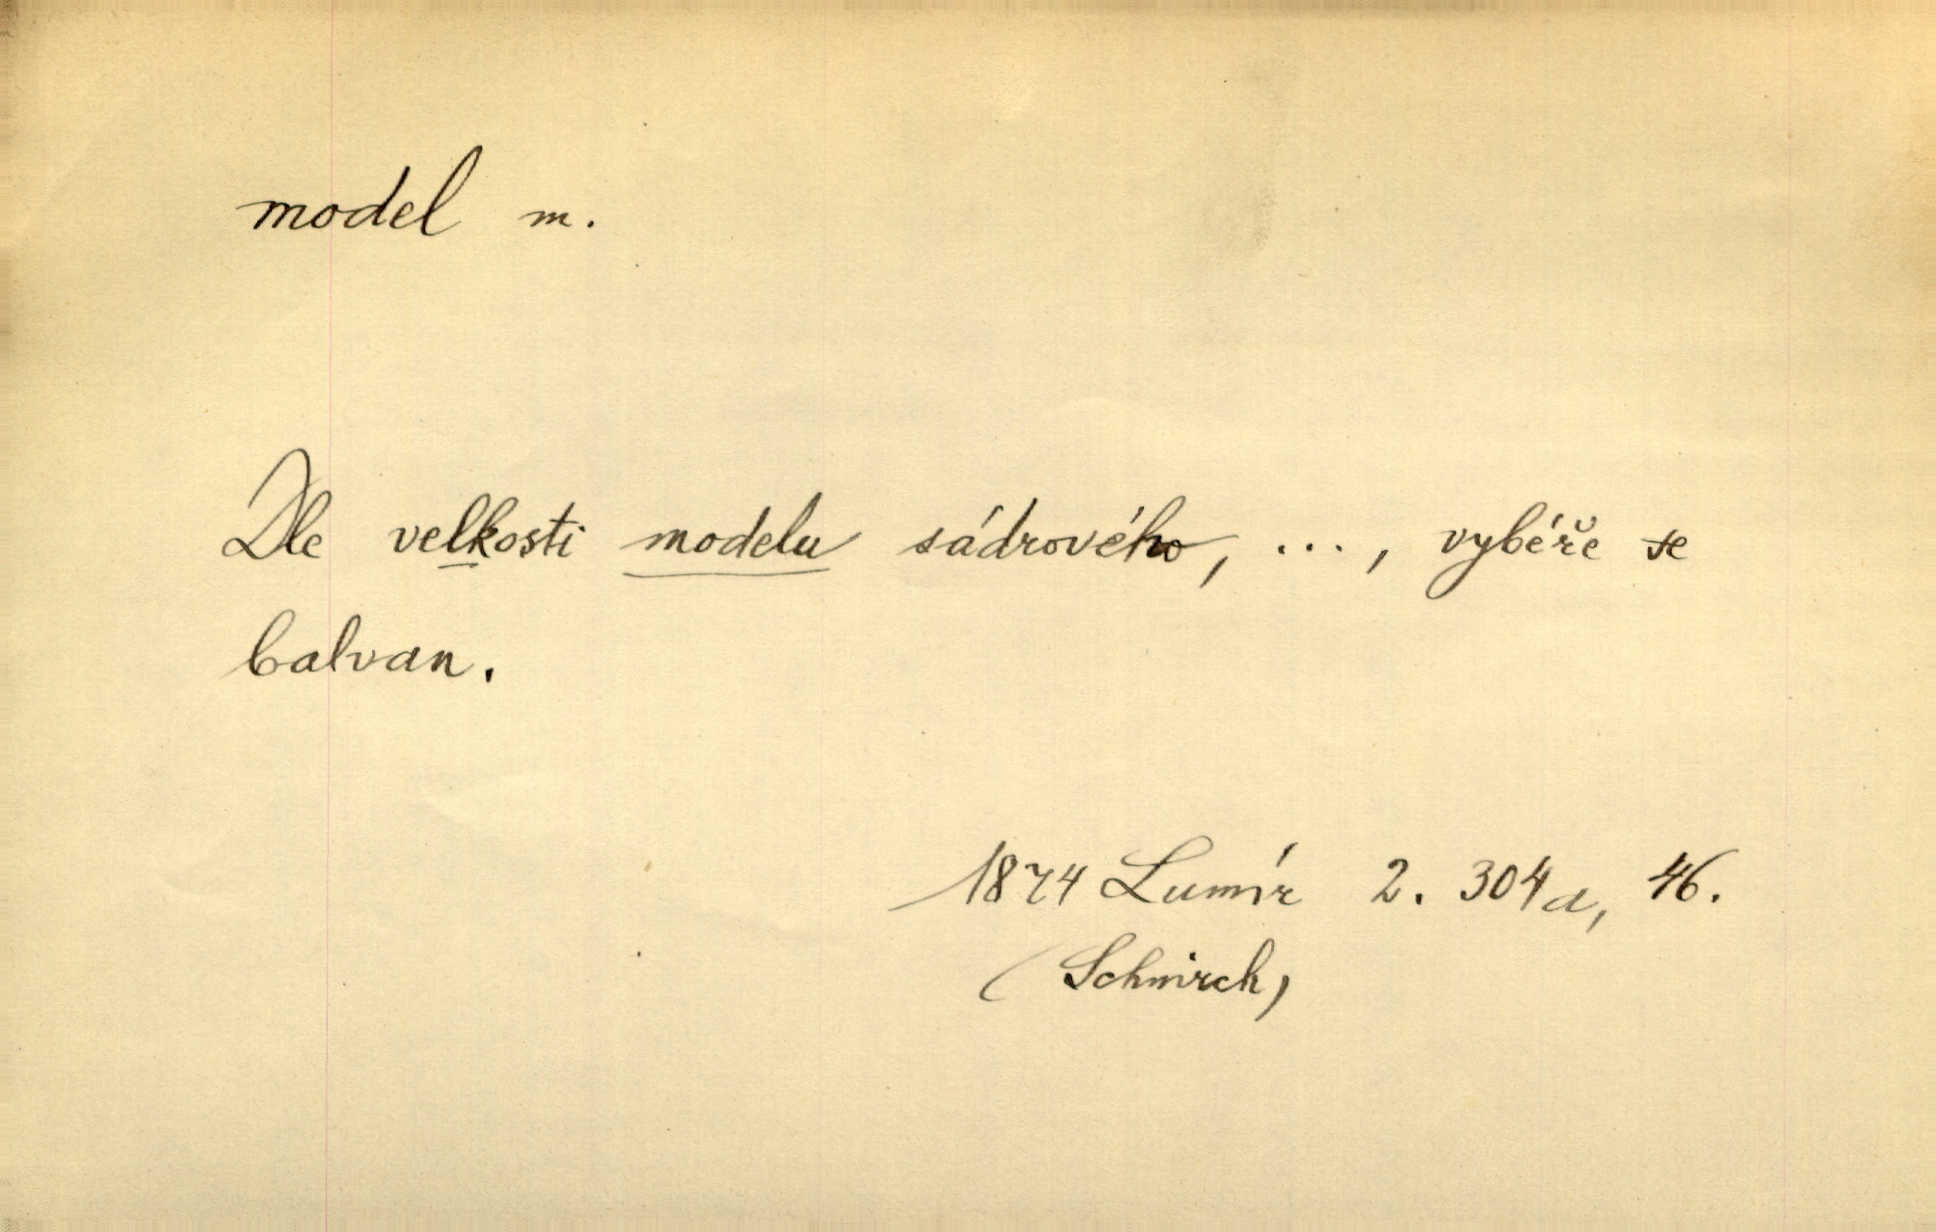 model m.
Dle velkosti modelu sádrového, ..., vybéře se
balvan.
1874 Lumír 2. 304a, 46.
(Schnirch)